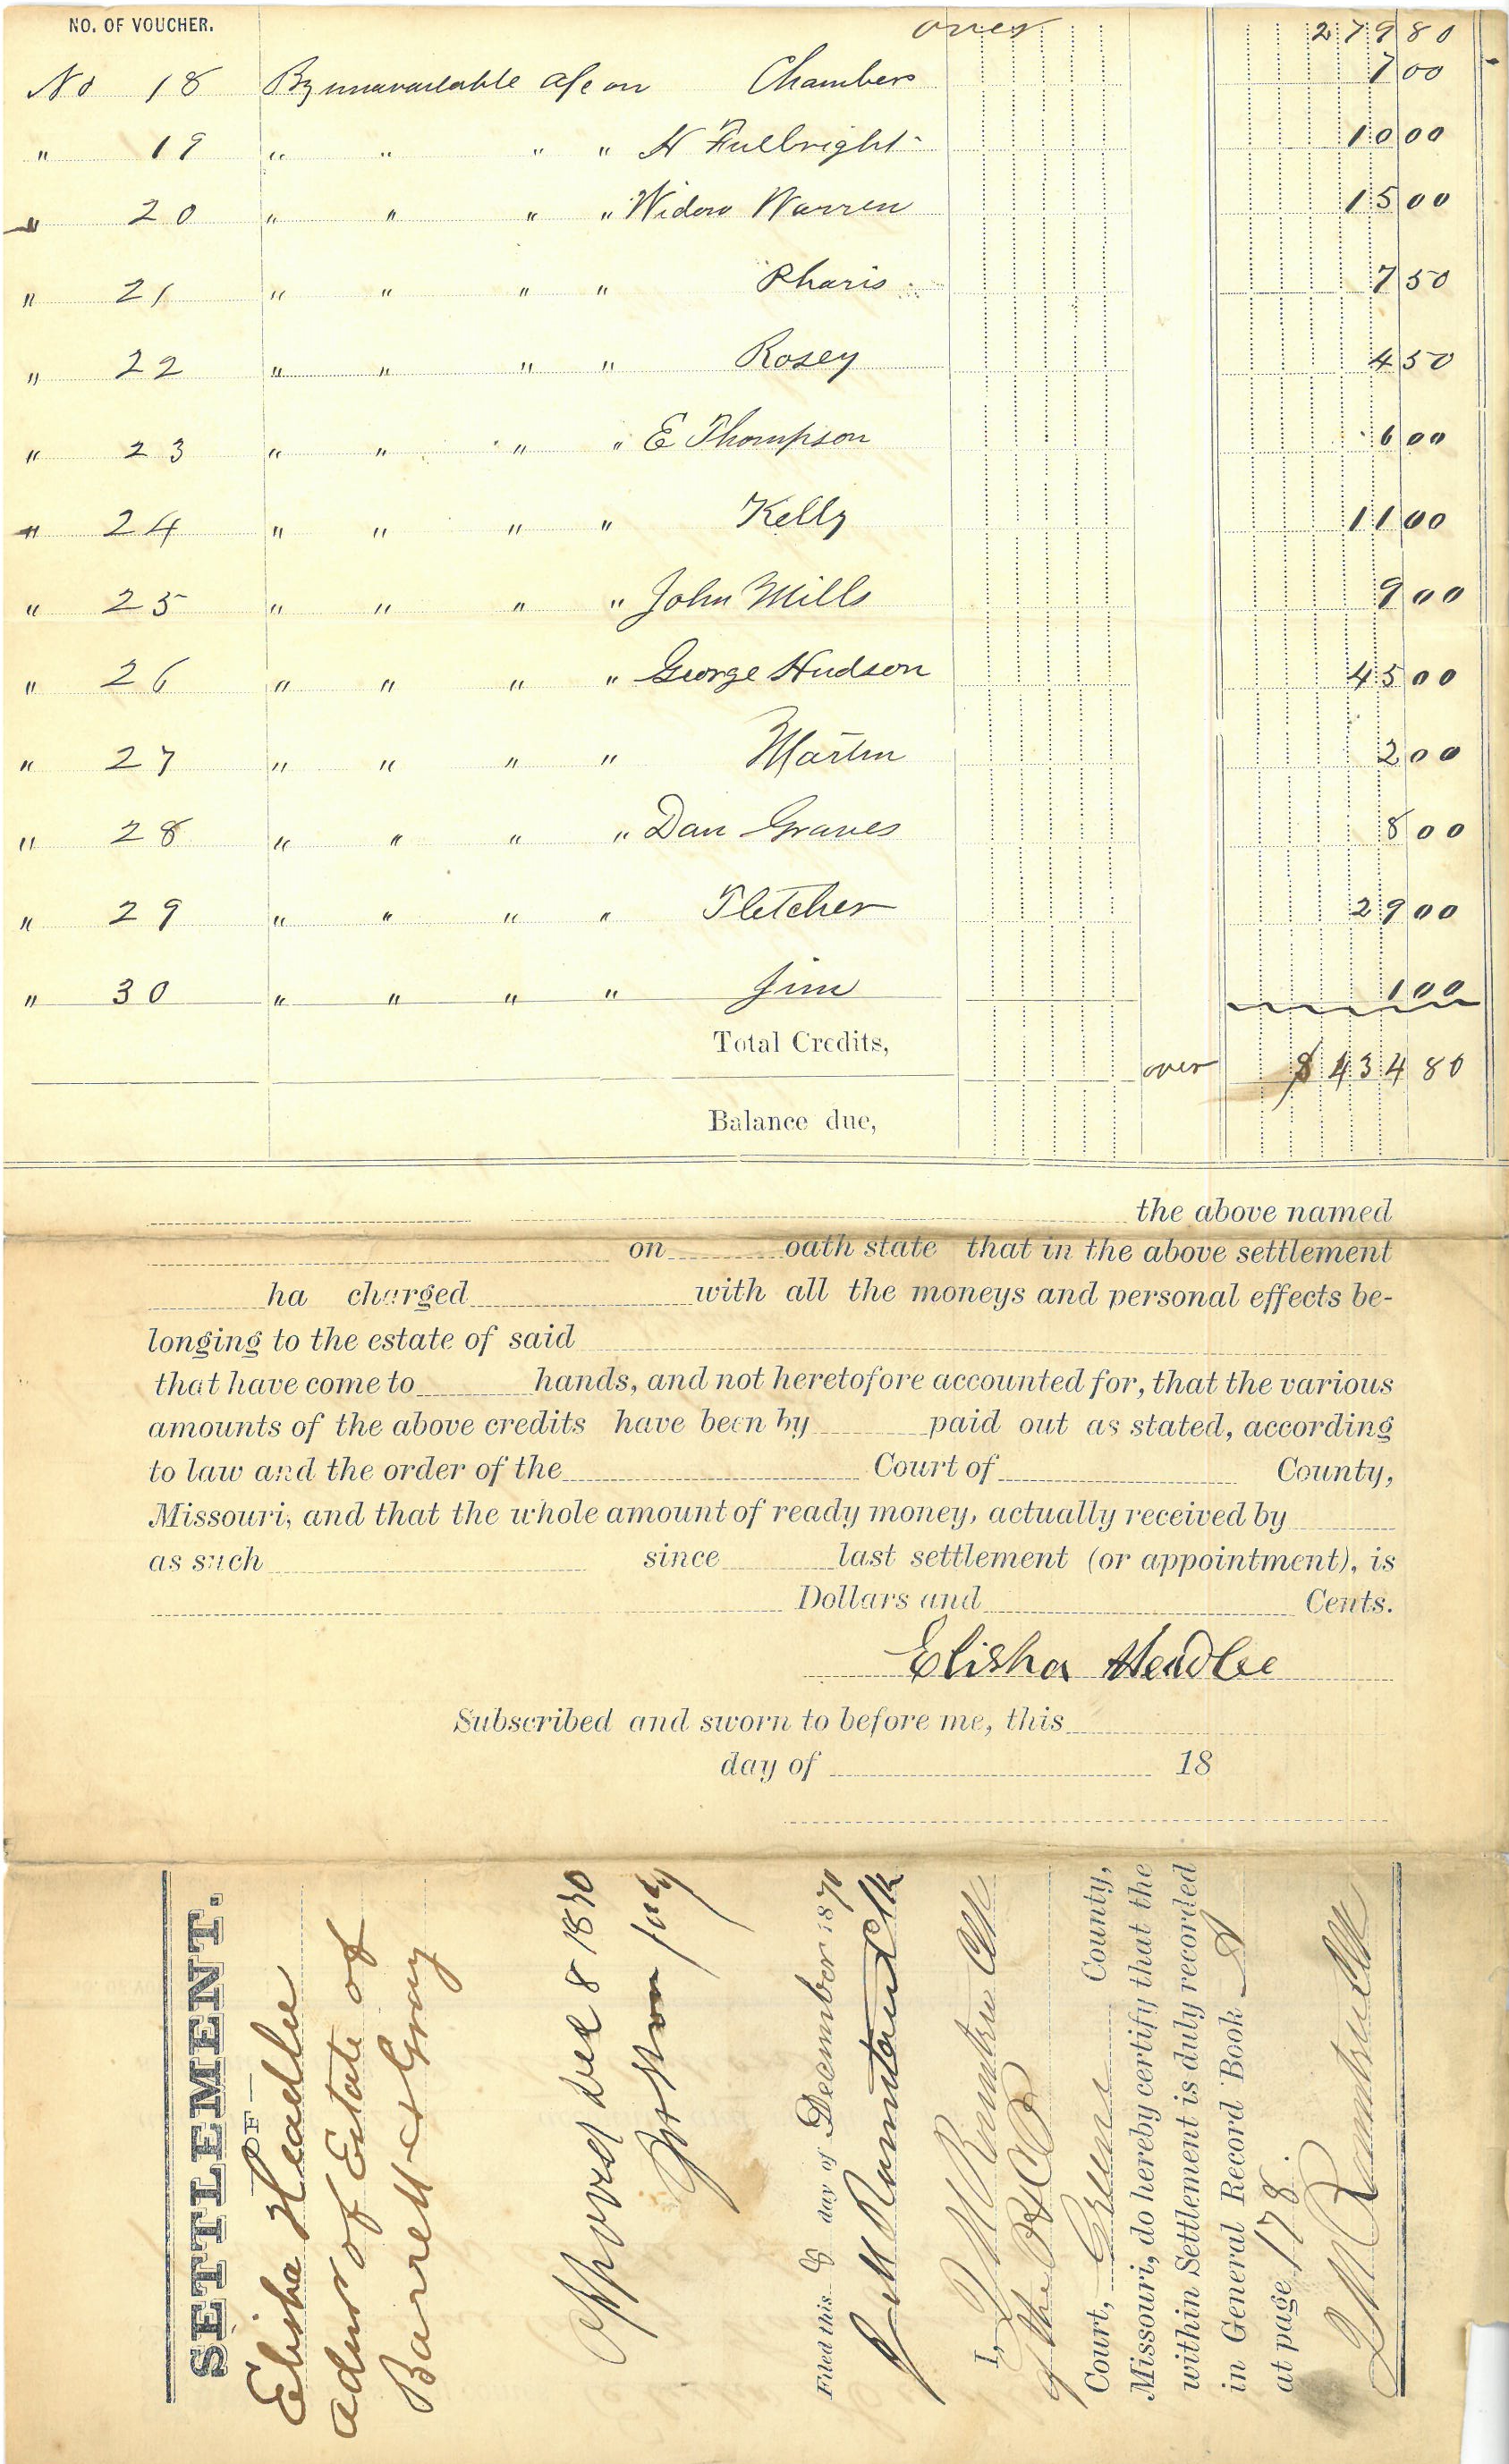 NO. OF VOUCHER. over 279 80
No 18 By unavailable a/c on Chambers 7 00
" 19 " " " " H Fullbright 10 00
" 20 " " " " Widow Warren 15 00
" 21 " " " " Pharis 7 50
" 22 " " " " Rosey 4 50
" 23 " " " " E Thompson 6 00
" 24 " " " " Kelly 11 00
" 25 " " " " John Mills 9 00
" 26 " " " " George Hudson 45 00
" 27 " " " " Martin 2 00
" 28 " " " " Dan Graves 8 00
" 29 " " " " Fletcher 29 00
" 30 " " " " Jim 1 00
Total Credits, over $ 434 80
Balance due,
the above named
on oath state that in the above settlement
ha charged with all the moneys and personal effects be-
longing to the estate of said
that have come to hands, and not heretofore accounted for, that the various
amounts of the above credits have been by paid out as stated, according
to law and the order of the Court of County,
Missouri, and that the whole amount of ready money, actually received by
as such since last settlement (or appointment), is
Dollars and Cents.
Elisha Headlee
Subscribed and sworn to before me, this
day of 18
SETTLEMENT.
—OF—
Elisha Headlee
admr of Estate of
Barrett & Gray
Approved Dec 8 1870
Filed this 8 day of December 1870
J M Rountree Clk
I, J M Rountree Clk
of the
Court, Greene County,
Missouri, do hereby certify that the
within Settlement is duly recorded
in General Record Book A
at page 178.
J M Rountree Clk